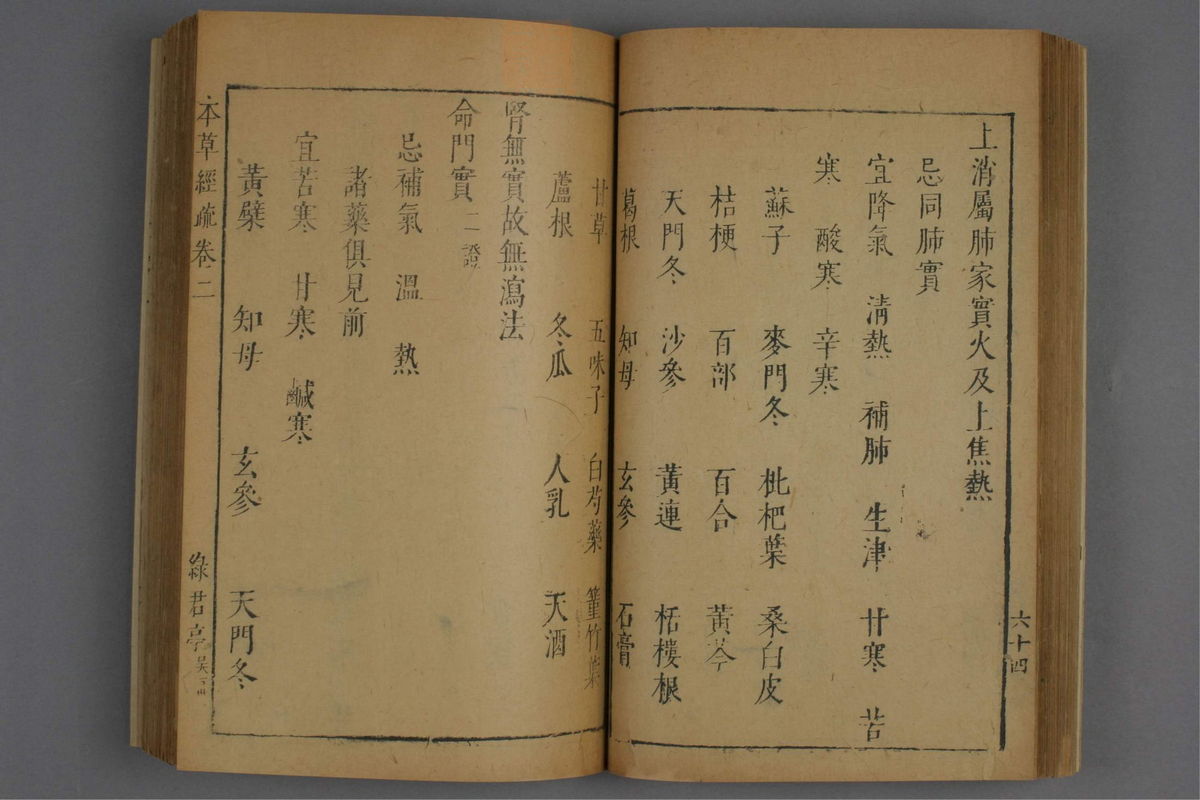 上消屬肺家實火及上焦熱
忌同肺實
宜降氣 清熱 補肺 生津 甘寒 苦
寒 酸寒 辛寒
蘇子 麥門冬 枇杷葉 桑白皮
桔梗 百部 百合 黃芩
天門冬 沙參 黃連 栝樓根
葛根 知母 玄參 石膏
六十四
甘草 五味子 白芍藥 篁竹葉
蘆根 冬瓜 人乳 天酒
腎無實故無瀉法
命門實二證
忌補氣 溫 熱
諸藥俱見前
宜苦寒 甘寒 鹹寒
黃檗 知母 玄參 天門冬
本草經疏卷二
綠君亭